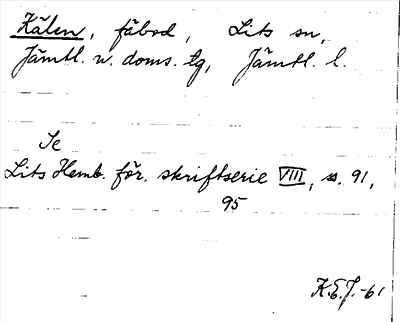 Kälen, fäbod, Lits sn,
Jämtl. v. doms. tg, Jämtl. l.
Se
Lits Hemb. för. skriftserie VIII, ss. 91,
95
K.E.J.-61